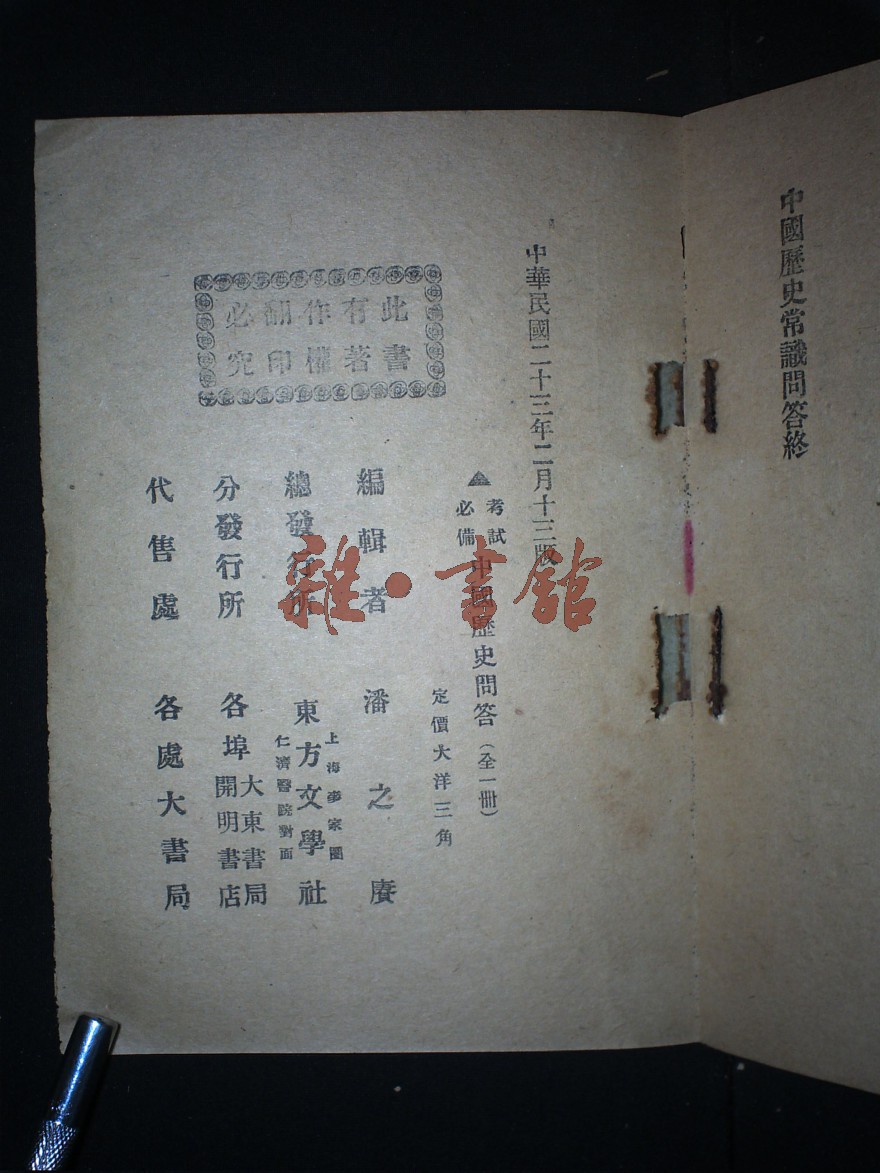 中國歷史常識問答終
中華民國二十三年二月十三版
▲考試必備 中國歷史問答（全一冊）
定價大洋三角
編輯者 潘之賡
總發行所 上海麥家圈 東方文學社 仁濟醫院對面
分發行所 各埠 大東書局 開明書店
代售處 各處大書局
此書
有著
作權
翻印
必究
雜·書館